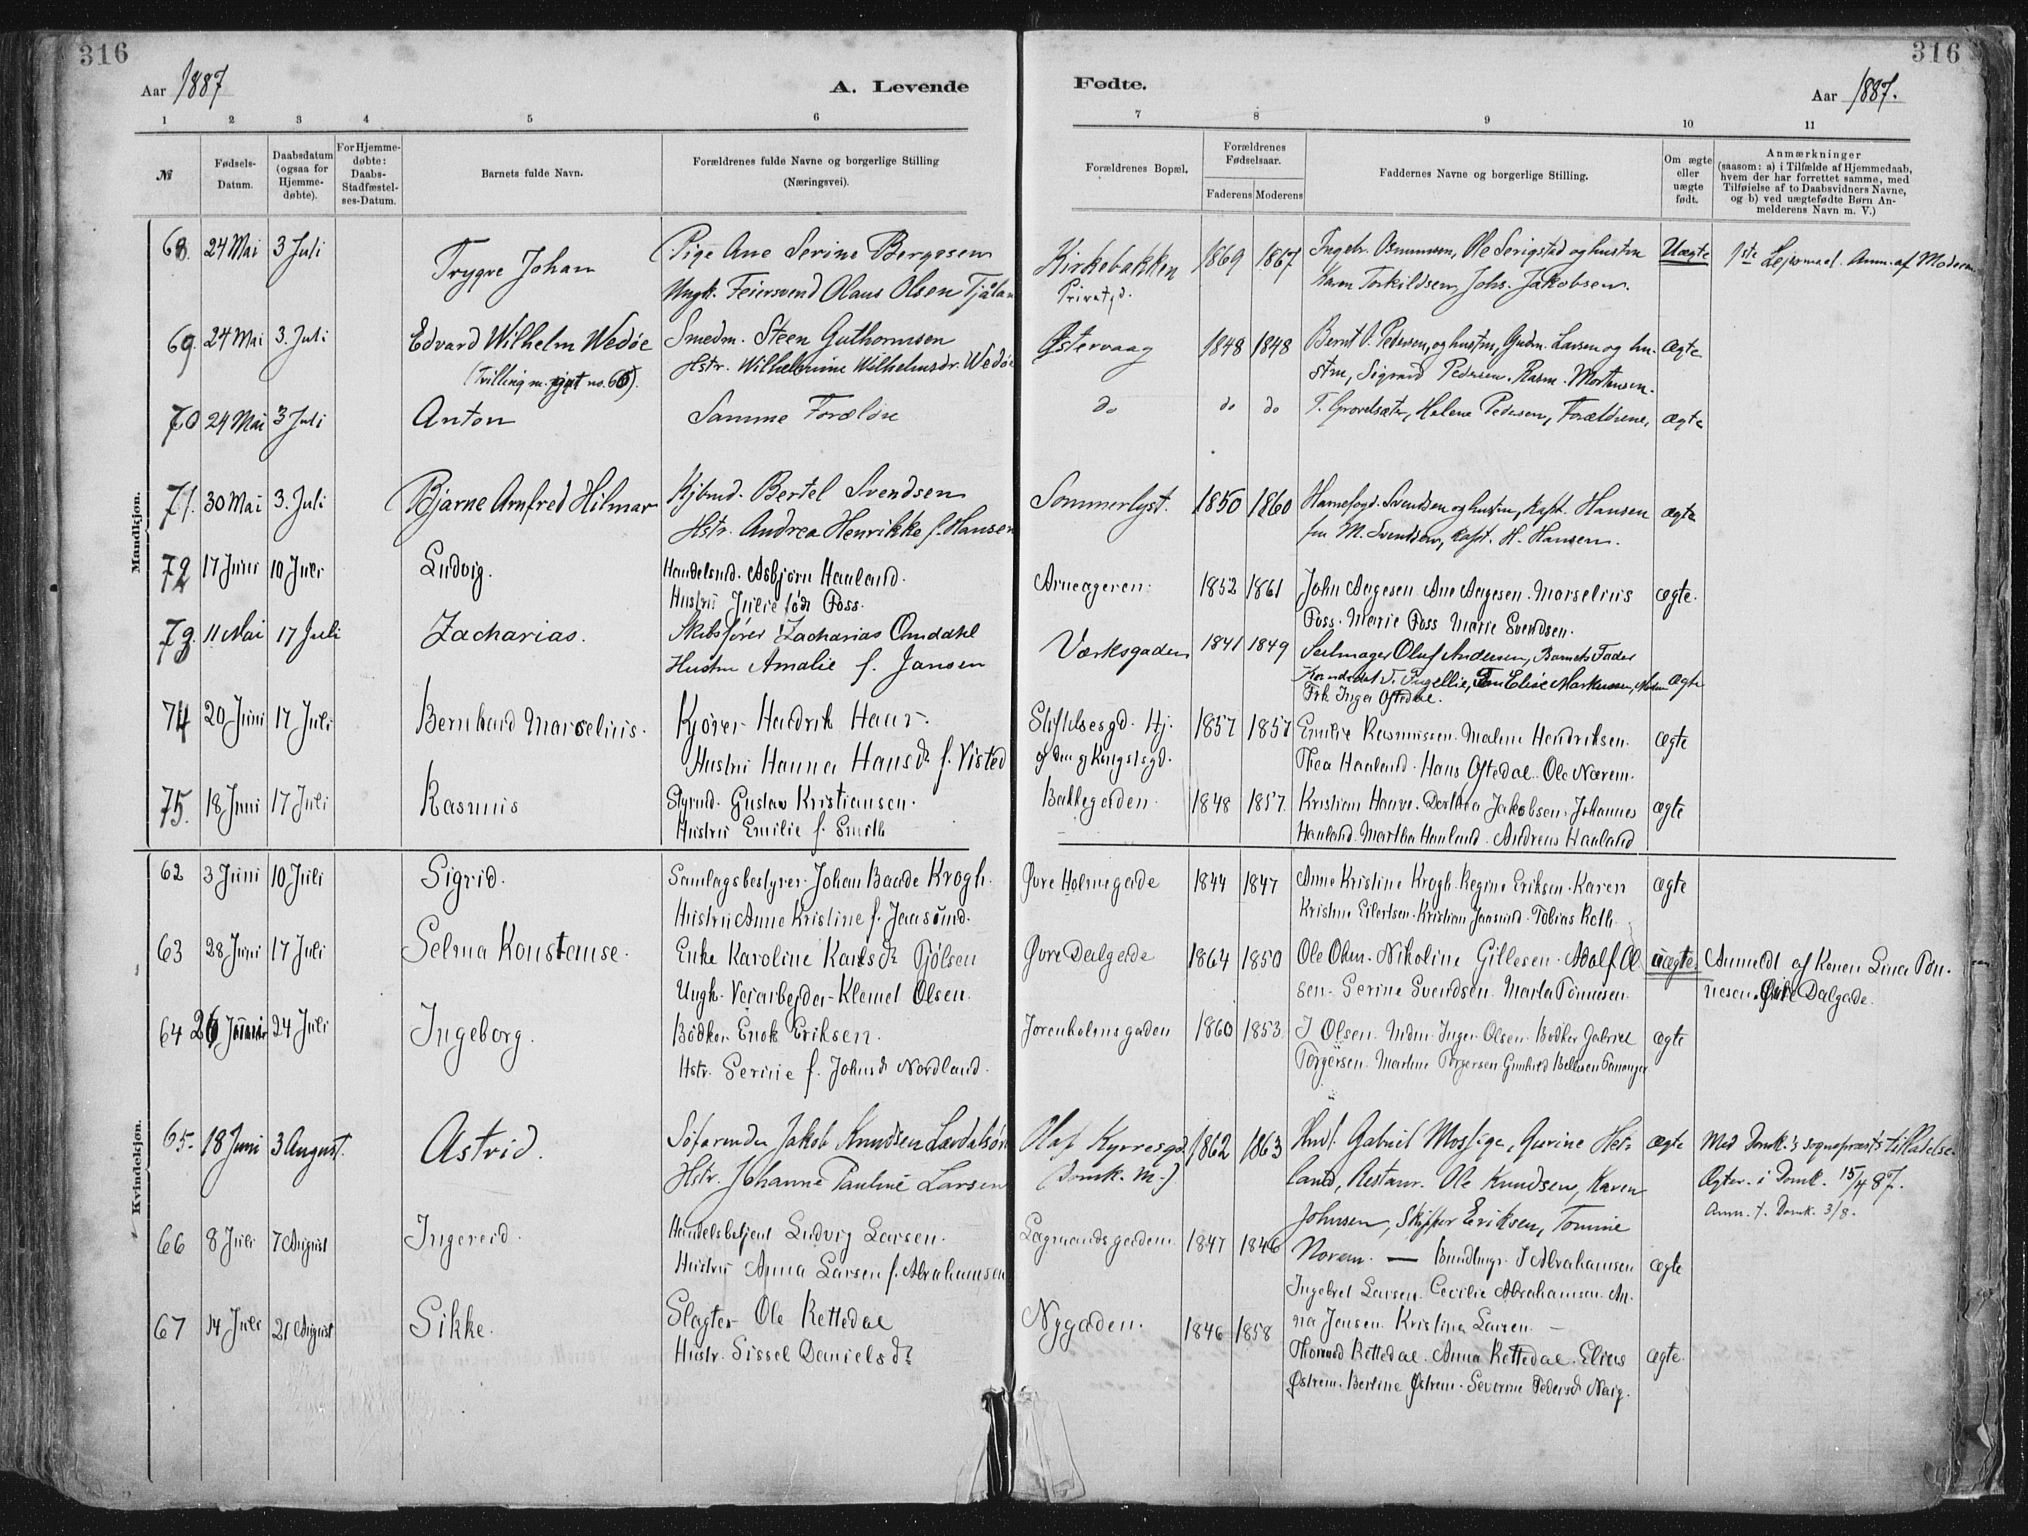 316
Aar 1887
A. Levende
1 2 3 4 5 6
№
Fødsels-Datum.
Daabsdatum (ogsaa for Hjemme-døbte).
For Hjemme-døbte: Daabs-Stadfæstel-ses-Datum.
Barnets fulde Navn.
Forældrenes fulde Navne og borgerlige Stilling
(Næringsvei).
Mandkjøn.
68. 24 Mai 3 Juli Trygve Johan Pige Ane Serine Bergesen
Ungk. Feiersvend Olaus Olsen
69. 24 Mai 3. Juli Edvard Wilhelm Wedøe Smedm. Steen Guthormsen
(Tvilling m. no. 66). Hstr. Wilhelmine Wilhelmsdr. Wedøe
70 24 Mai 3 Juli Anton Samme Forældre
71. 30 Mai 3. Juli Bjarne Arnfred Hilmar Kjbmd. Bertel Svendsen
Hstr. Andrea Henrikke f. Hansen
72 17 Juni 10 Juli Ludvig. Handelsmd. Asbjørn Haaland.
Hustru Julie født Poss.
73. 11 Mai 17 Juli Zacharias. Skibsfører Zacharias Omdahl
Hustru Amalie f. Jansen
74 20 Juni 17 Juli Bernhard Marselius. Kjører Hendrik Hans
Hustru Hanna Hansd. f. Visted
75. 18 Juni 17 Juli Rasmus Styrmd. Gustav Kristiansen.
Hustru Emilie f. Smith
Kvindekjøn.
62 3 Juni 10 Juli Sigrid. Samlagsbestyrer Johan Baade Krogh.
Hustru Anne Kristine f. Jaasund.
63 28 Juni 17 Juli Selma Konstanse. Enke Karoline Karlsdr Tjølsen
Ungk. Veiarbeider Klemet Olsen.
64 26 24 Juli Ingeborg. Bødker Enok Eriksen.
Hstr. Serine f. Johnsd Nordland.
65. 18 Juni 3 August. Astrid. Søfarende Jakob Knudsen
Hstr. Johanne Pauline Larsen
66 8 Juli 7 August Ingereid. Handelsbetjent Ludvig Larsen.
Hustru Anna Larsen f. Abrahamsen
67 14 Juli 21 August Sikke. Slagter Ole Kettedal
Hustr. Sissel Danielsdr
316
Fødte.
Aar 1887.
7 8 9 10 11
Forældrenes Bopæl.
Forældrenes Fødselsaar.
Faderens Moderens
Faddernes Navne og borgerlige Stilling.
Om ægte eller uægte født.
Anmærkninger
(saasom: a) i Tilfælde af Hjemmedaab,
hvem der har forrettet samme, med
Tilføielse af to Daabsvidners Navne,
og b) ved uægtefødte Børn An-
melderens Navn m. V.)
Kirkebakken 1869 1867 Ingebr. Osmunsen, Ole Serigstad og hustru Uægte 1ste Leiermaal. Anm. af Moderen
Privatgd. Karen Torkildsen, Johs. Jakobsen.
Østervaag 1848 1848 Bernt O. Pedersen, og hustru, Gudm. Larsen og hu- Ægte
stru, Sigvard Pedersen. Rasm. Mortensen.
do do do T. Grovelsæter, Helene Pedersen, Forældrene, ægte
Sommerlyst. 1850 1860 Havnefogd. Svendsen og hustru, Kapt. Hansen ægte
fru M. Svendsen, Kapt. H. Hansen.
Arneageren. 1852 1861 John Aagesen Ane Aagesen. Marselius ægte.
Poss. Marie Poss Marie Svendsen.
Værksgaden 1841 1849 Seilmager Oluf Andersen, Barnets Fader
Elise Markussen, Moderen ægte
Frk. Inga Oftedal.
1857 1857 Emilie Rasmussen. Malene Hendriksen. ægte
og Kongsgd. Thea Haaland. Hans Oftedal. Ole Nærem.
Bakkegaden. 1848 1857. Kristian Hauve. Dorthea Jakobsen. Johannes ægte
Haaland. Martha Haaland. Andreas Haaland
Øvre Holmegade 1844 1847 Anne Kristine Krogh. Regine Eriksen. Karen ægte
Kristine Eilertsen. Kristian Jaasund. Tobias Roth.
Øvre Dalgade 1864 1850 Ole Olsen. Nikoline Gillesen. Adolf Ol- uægte. Anmeldt af Konen Lina Tøn-
sen. Serine Svendsen. Marta Tønnesen. nesen. Øvre Dalgade.
Jorenholmsgaden 1860 1853 J Olsen. Mdm. Inger Olsen. Bødker Gabriel ægte
Torgersen. Martine Torgersen
Olaf Kyrresgd. 1862 1863 Gabriel Mossige, Gurine Het- ægte Med Domk.'s sognepræsts tilladelse
(Domk. M.) land, Restaur. Ole Knudsen, Karen Ægtev. i Domk. 15/4 87.
Johnsen, Skipper Eriksen, Tomine Anm. t. Domk. 3/8.
Lagmandsgaden. 1847 1846 Norem. — J Abrahamsen ægte
Ingebret Larsen. Cecilie Abrahamsen. An-
na Jensen. Kristina Larsen. —
Nygaden. 1846 1858 Thomas Kettedal. Anna Kettedal. Elias ægte.
Østrem. Berline Østrem. Severine Pedersd.